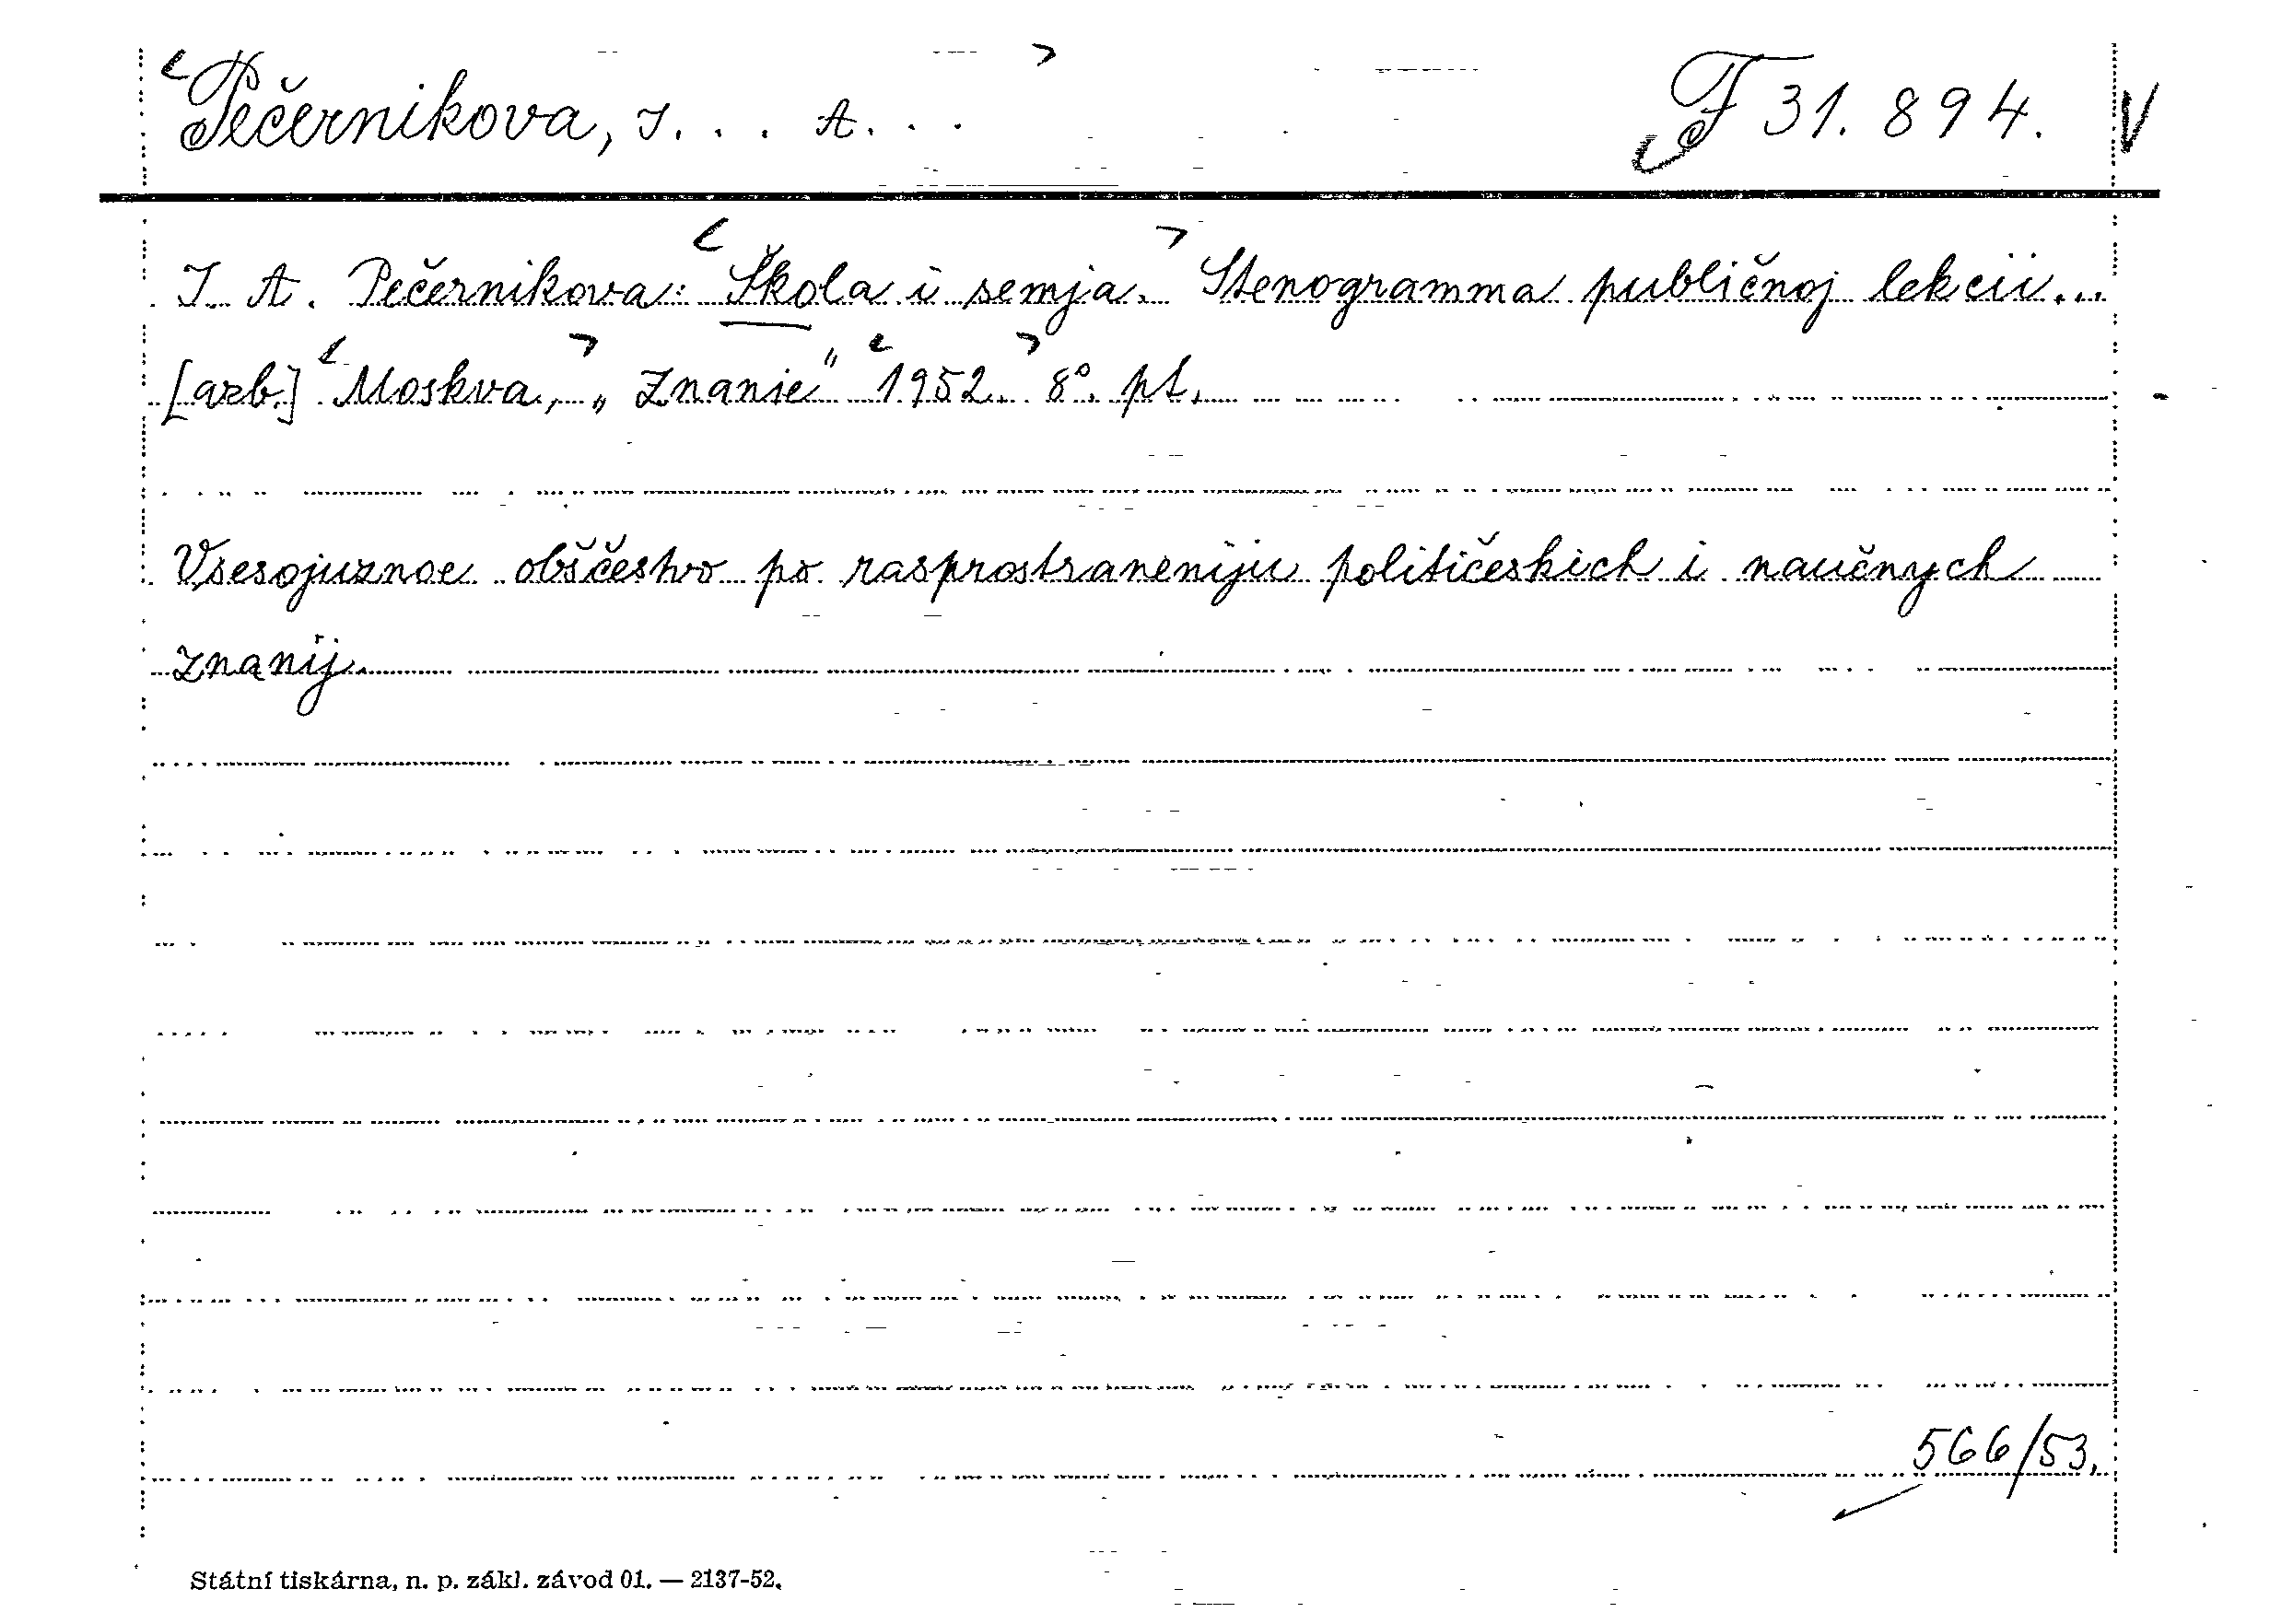 Pečernikova, I... A... F 31.894. V
I. A. Pečernikova: Škola i semja. Stenogramma publičnoj lekcii...
[azb.] Moskva, „Znanie" 1952. 8°. pt.
Vsesojuznoe obščestvo po rasprostraneniju političeskich i naučnych
znanij.
566/53.
Státní tiskárna, n. p. zákl. závod 01. — 2137-52.